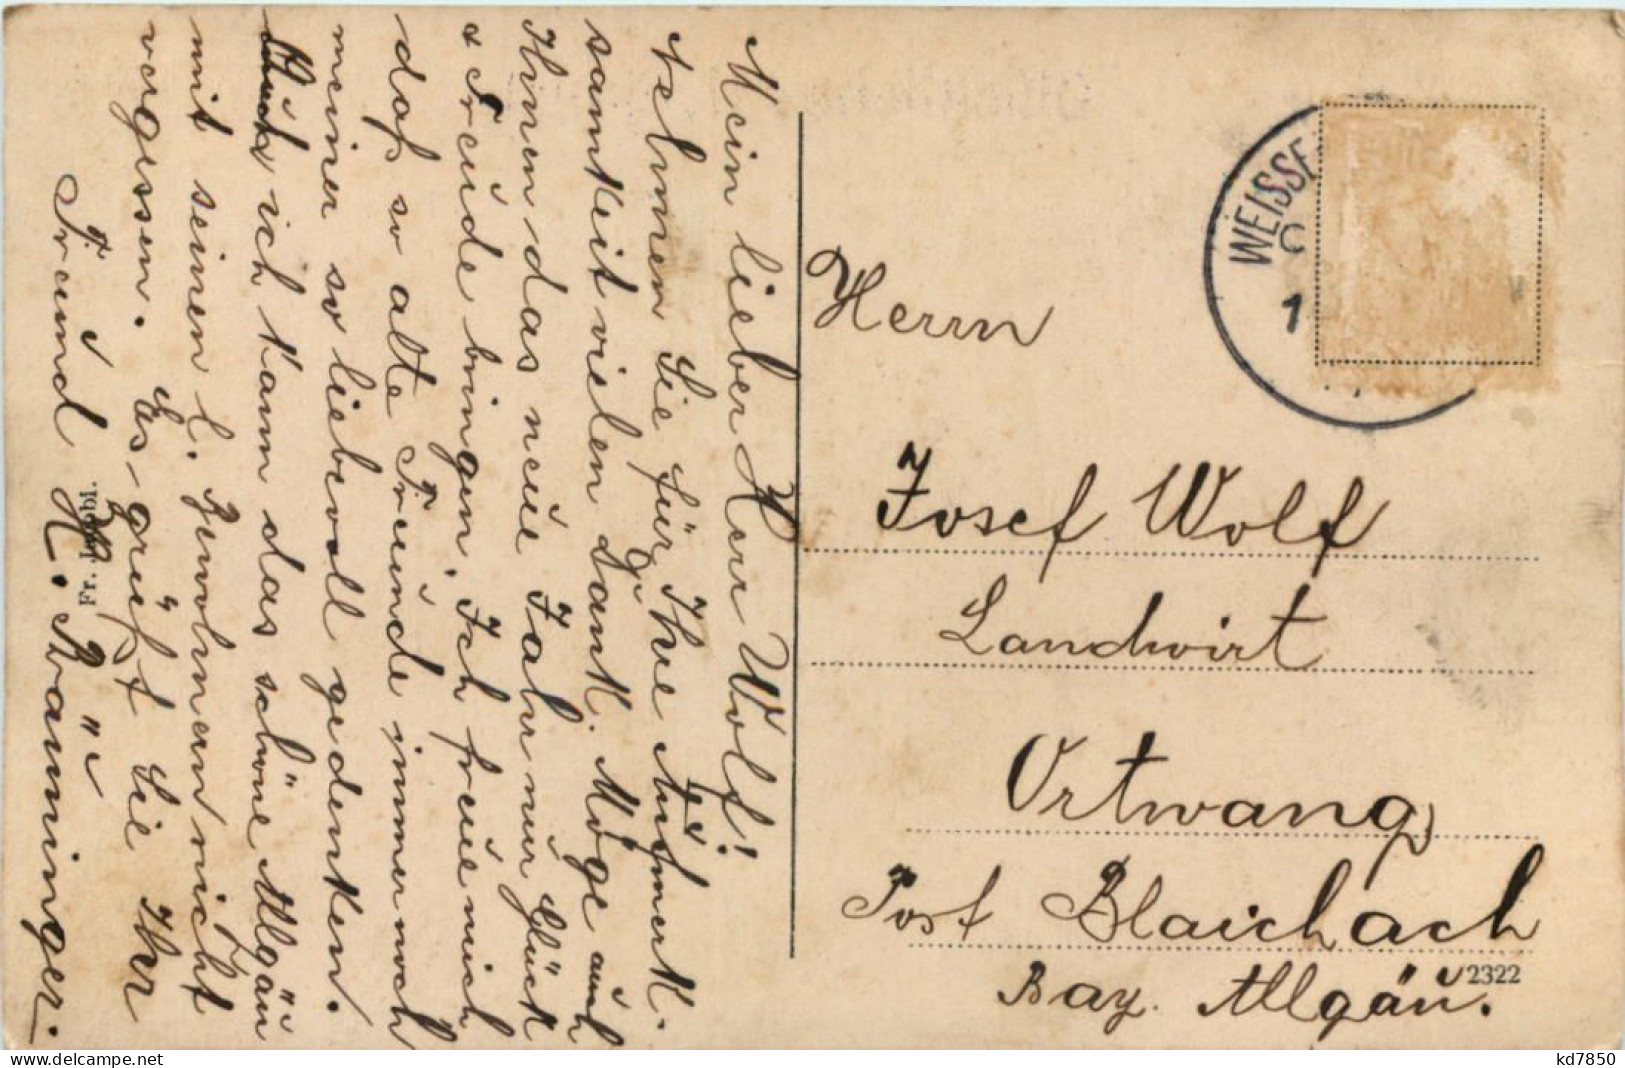 Mein lieber Herr Wolf!
nehmen Sie für Ihre Aufmerk-
samkeit vielen Dank. Möge auch
Ihnen das neue Jahr nur Glück
u Freude bringen. Ich freue mich
daß so alte Freunde immer noch
meiner so liebevoll gedenken.
Auch ich kann das schöne Allgäu
mit seinen l. Bewohnern nicht
vergessen. Es grüßt Sie Ihr
Freund H. Bräuninger.
Herrn
Josef Wolf
Landwirt
Ortwang
Post Blaichach
Bay. Allgäu.
2322
WEISSE
1
delcampe.net
kd7850